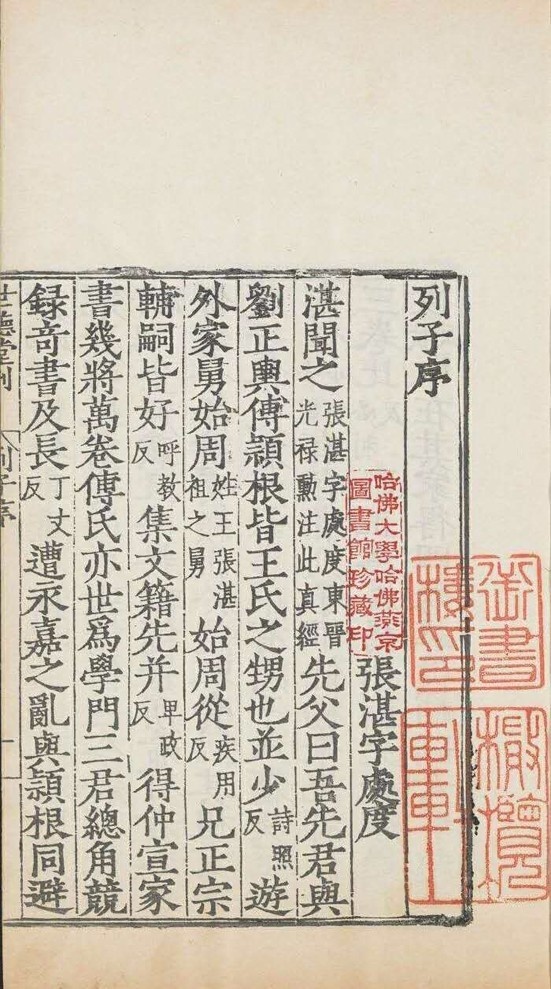 列子序
張湛字處度
湛聞之張湛字處度東晉光祿勳注此真經先父曰吾先君與
劉正輿傅頴根皆王氏之甥也並少詩照反遊
外家舅始周姓王張湛祖之舅始周從疾用反兄正宗
輔嗣皆好呼教反集文籍先并卑政反得仲宣家
書幾將萬卷傅氏亦世爲學門三君總角競
録奇書及長丁丈反遭永嘉之亂與頴根同避
世德堂刊 列子序 一
哈佛大學哈佛燕京
圖書館珍藏印
御書
樓印